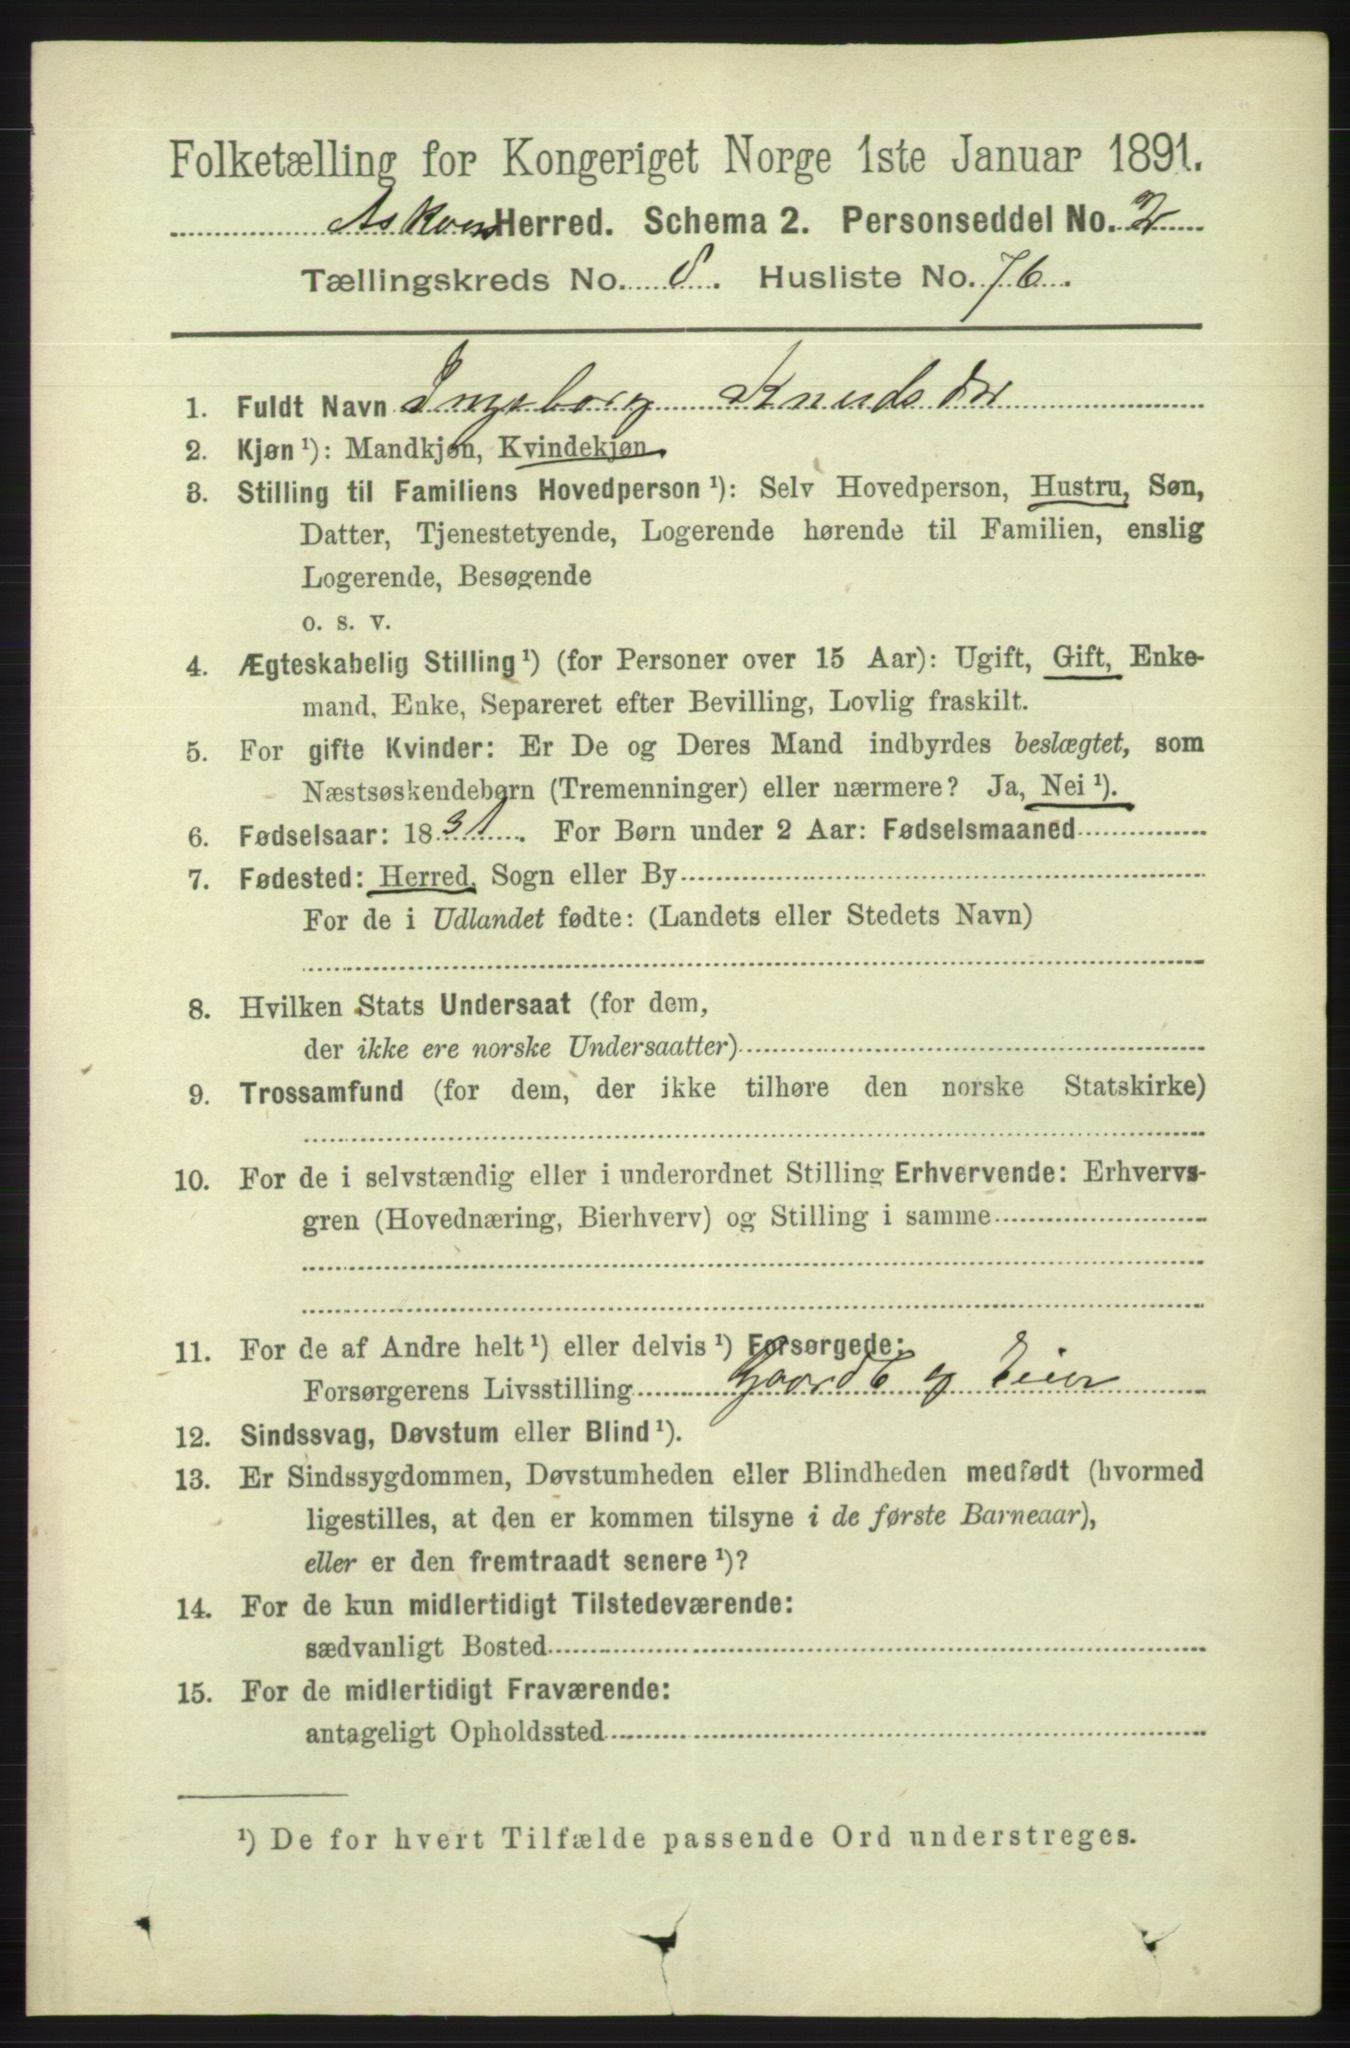 Folketælling for Kongeriget Norge 1ste Januar 1891.
Askvold Herred. Schema 2. Personseddel No. 2
Tællingskreds No. 8. Husliste No. 76.
1. Fuldt Navn Ingeborg Knudsdtr
2. Kjøn¹): Mandkjøn, Kvindekjøn.
3. Stilling til Familiens Hovedperson¹): Selv Hovedperson, Hustru, Søn,
Datter, Tjenestetyende, Logerende hørende til Familien, enslig
Logerende, Besøgende
o. s. v.
4. Ægteskabelig Stilling¹) (for Personer over 15 Aar): Ugift, Gift, Enke-
mand, Enke, Separeret efter Bevilling, Lovlig fraskilt.
5. For gifte Kvinder: Er De og Deres Mand indbyrdes beslægtet, som
Næstsøskendebørn (Tremenninger) eller nærmere? Ja, Nei¹).
6. Fødselsaar: 1831. For Børn under 2 Aar: Fødselsmaaned
7. Fødested: Herred, Sogn eller By
For de i Udlandet fødte: (Landets eller Stedets Navn)
8. Hvilken Stats Undersaat (for dem,
der ikke ere norske Undersaatter)
9. Trossamfund (for dem, der ikke tilhøre den norske Statskirke)
10. For de i selvstændig eller i underordnet Stilling Erhvervende: Erhvervs-
gren (Hovednæring, Bierhverv) og Stilling i samme
11. For de af Andre helt¹) eller delvis¹) Forsørgede:
Forsørgerens Livsstilling Gaardb og Eier
12. Sindssvag, Døvstum eller Blind¹).
13. Er Sindssygdommen, Døvstumheden eller Blindheden medfødt (hvormed
ligestilles, at den er kommen tilsyne i de første Barneaar),
eller er den fremtraadt senere¹)?
14. For de kun midlertidigt Tilstedeværende:
sædvanligt Bosted
15. For de midlertidigt Fraværende:
antageligt Opholdssted
¹) De for hvert Tilfælde passende Ord understreges.